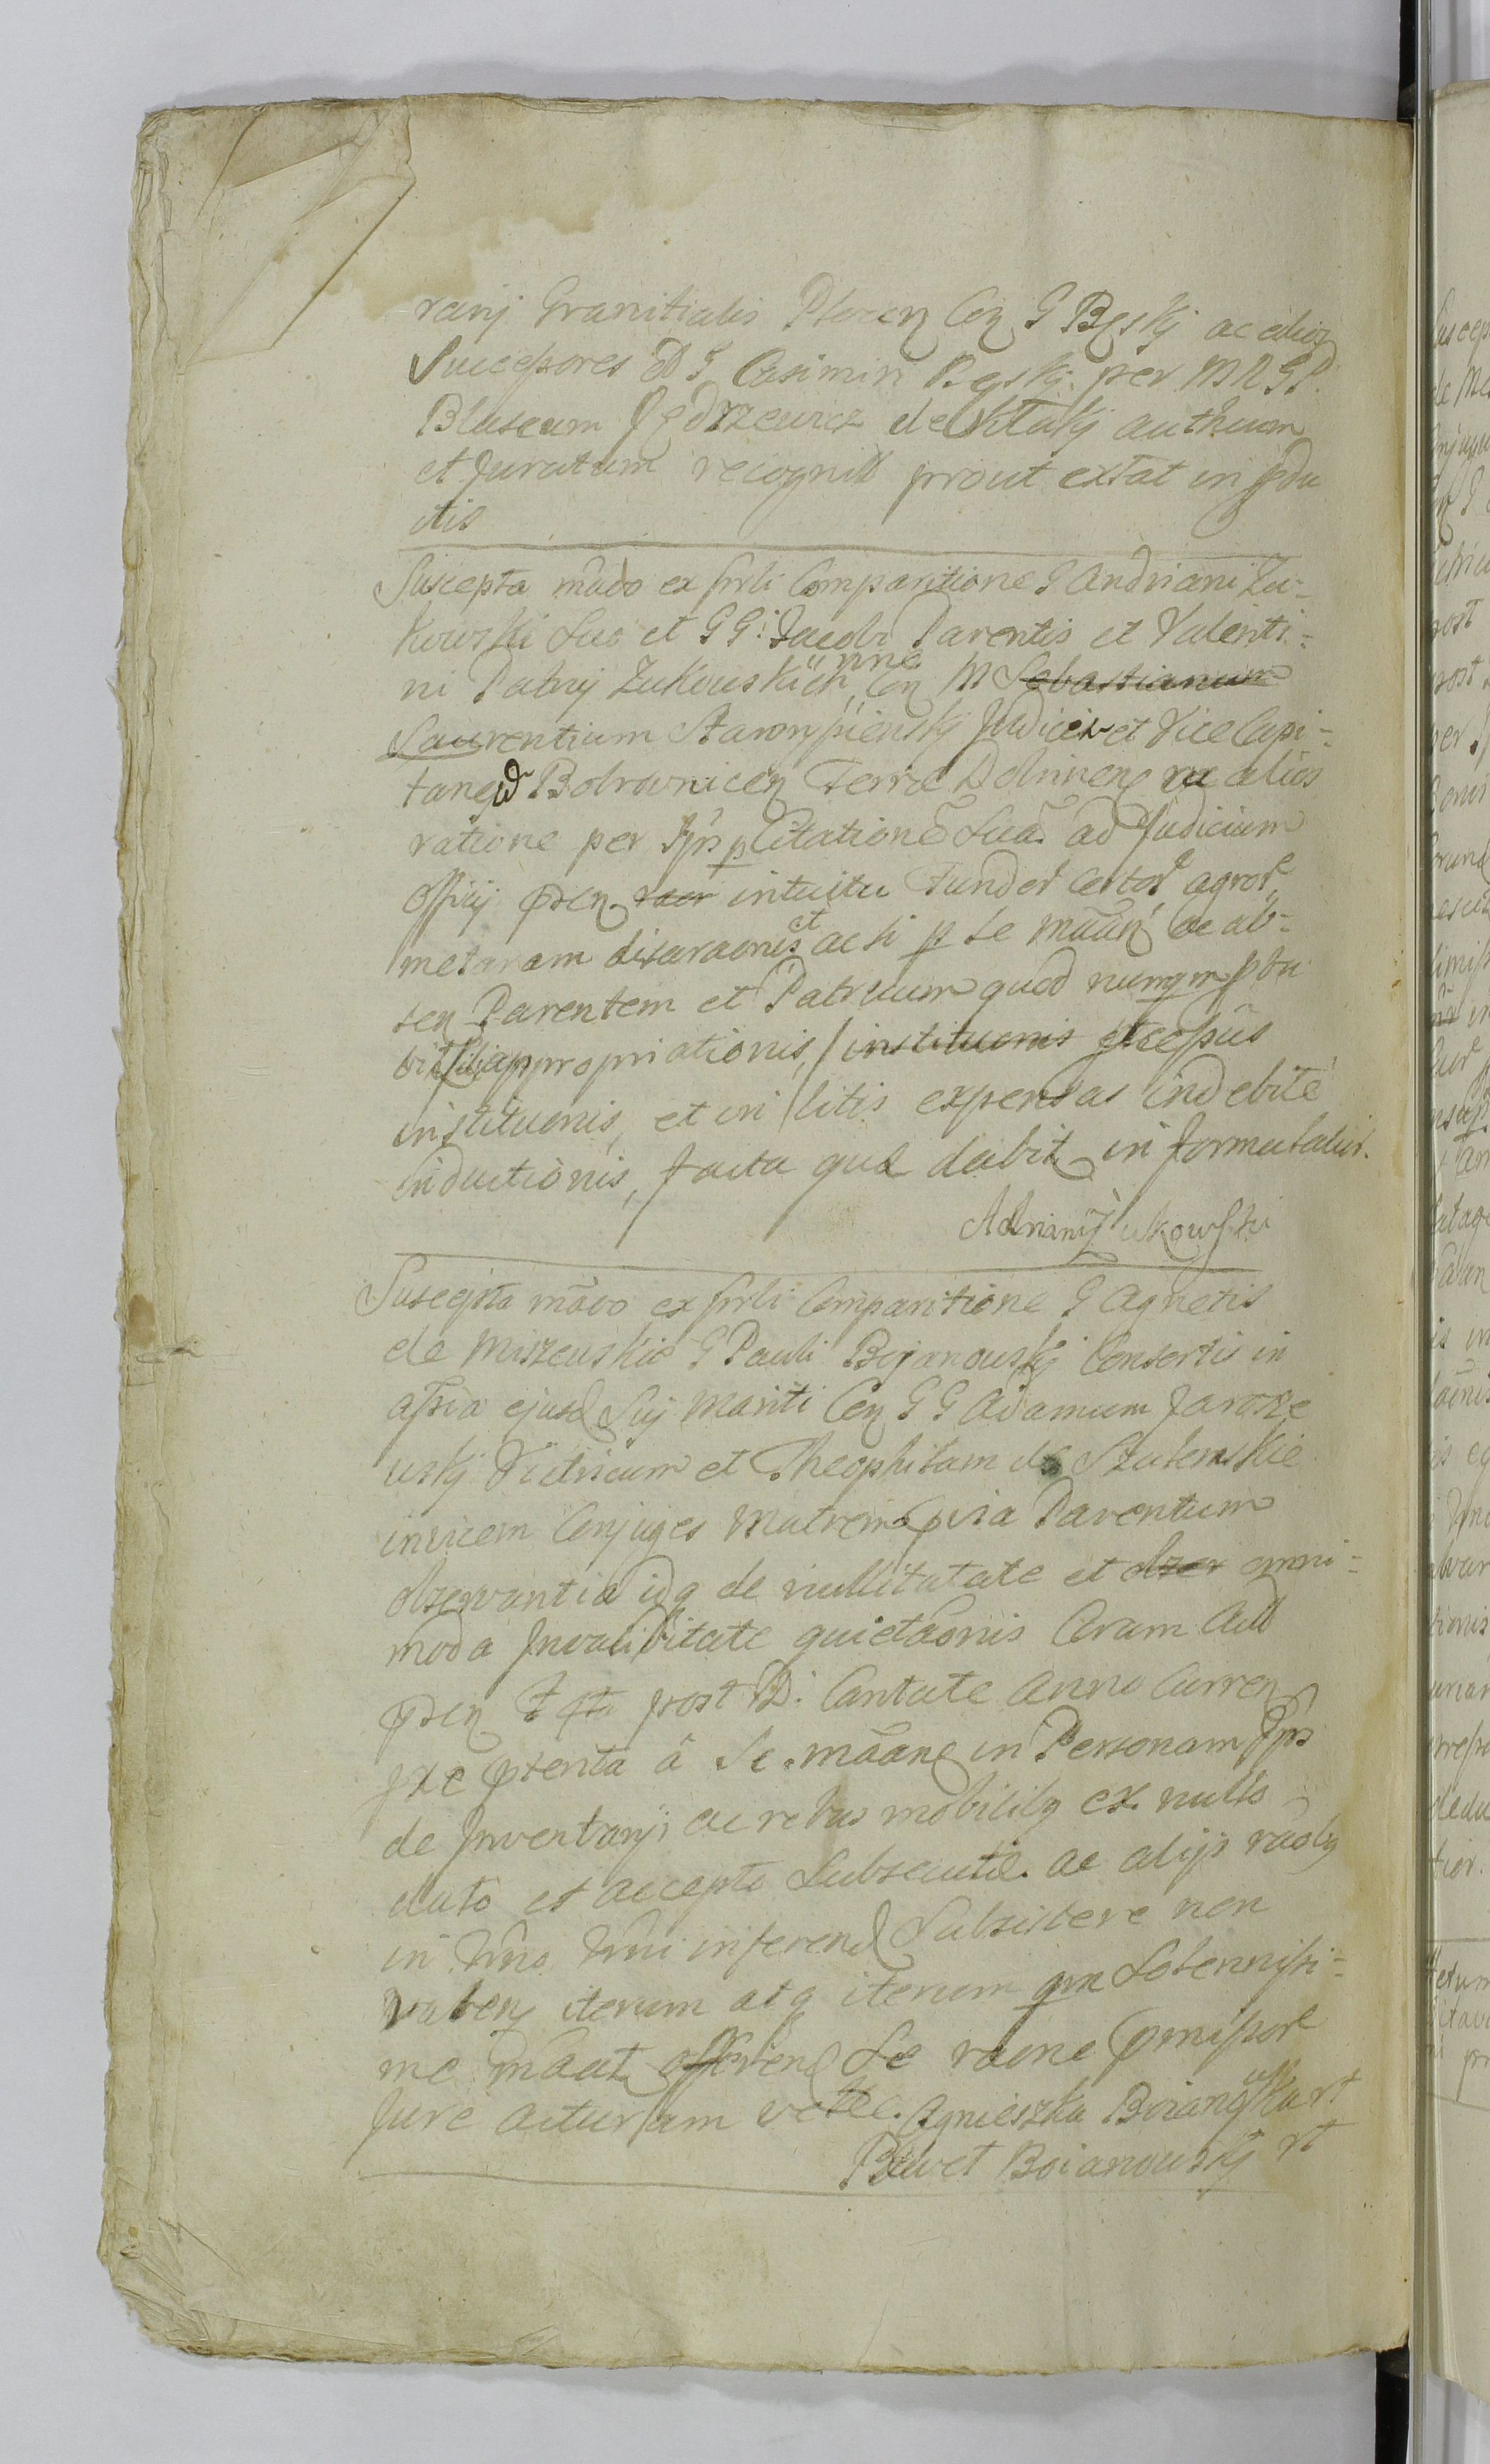 rarij Granitialis Plocen Con G Bęskj ac alios
Successores G Casimiri Bęskj per MRGP
Blaseum Jędrzewicz de Ktukj authum
et juratum recognit prout extat in
itis
Suscepta mado ex prli Comparitione G Andriani Zu-
kowski Suo et GG: Jacobi Parentis et Valenti-
ni Patruj Zukouskich nne Con M Sebastianum
Laurentium Starorypienskj Judicem et Vice Capi-
taneu Bobrownicen Terræ Dobrinen ac alios
ratione per Ipsos Citatione Sua ad Judicium
Officij pren intuitu Fundor certor agror
metaram disaraonis et ac si p se maan ac ab-
sen Parentem et Patruum quod nunqm ptu
bit sibi appropriationis, institutionis
institutionis, et in litis expensas indebite
inductionis, facta quæ dabit in forma latior.
Adrian Zukowski
Suscepta mado ex prli Comparitione G Agnetis
de Miszeuskie G Pauli Bojanouskj Consortis in
assia ejusd Sui Mariti Con GG Adamum Jarosze
uskj Vitricum et Theophilam de Szulenskie
invicem Conjuges Matrem Quia Parentum
observantia idq de nullitatate et obser omni-
moda Invaliditate quietaonis Coram Actis
pren fta post D: Cantate Anno Curren
prætenta â Se maane in Personam Ipsor
de Inventarij ac rebus mobilibq ex nullo
dato et accepto Subsecutæ ac alijs raobq
in Trno Trni inferend Subsistere non
valen iterum atq iterum qm Solennissi-
me maat offerend Se raone præmissor
Jure acturam velle. Agnieszka Boianowska rt
Pawet Boianouskj rt